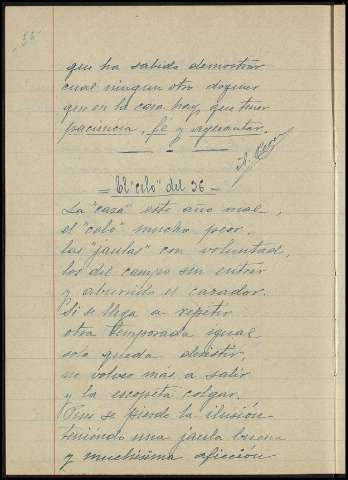 36
que ha sabido demostrar
cual ningun otro
que en la caza hay, que tener
paciencia, fé y aguantar.
= El "celo" del 36 =
La "caza" este año mal,
el "celo" mucho peor,
las "jaulas" con voluntad,
los del campo sin entrar
y aburrido el cazador.
Si se llega a repetir
otra temporada igual
solo queda desistir,
no volver más a salir
y la escopeta colgar.
Pues se pierde la ilusión
teniendo una jaula buena
y muchisima afición